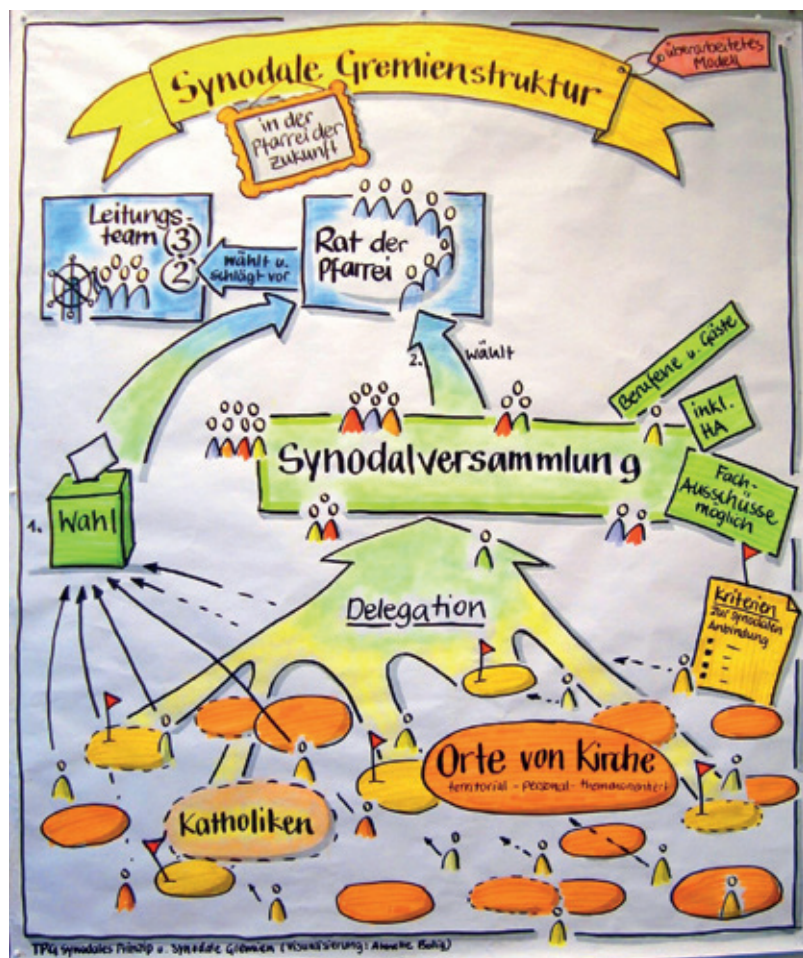 Synodale Gremienstruktur
überarbeitetes
Modell
in der
Pfarrei der
Zukunft
Leitungs-
team 3
2
wählt u.
schlägt vor
Rat der
Pfarrei
2.
wählt
Berufene u. Gäste
inkl.
HA
Synodalversammlung
Fach-
Ausschüsse
möglich
1.
Wahl
Delegation
Kriterien
zur synodalen
Anbindung
Orte von Kirche
territorial - personal - themenorientiert
Katholiken
TPG Synodales Prinzip u. Synodale Gremien (Visualisierung: